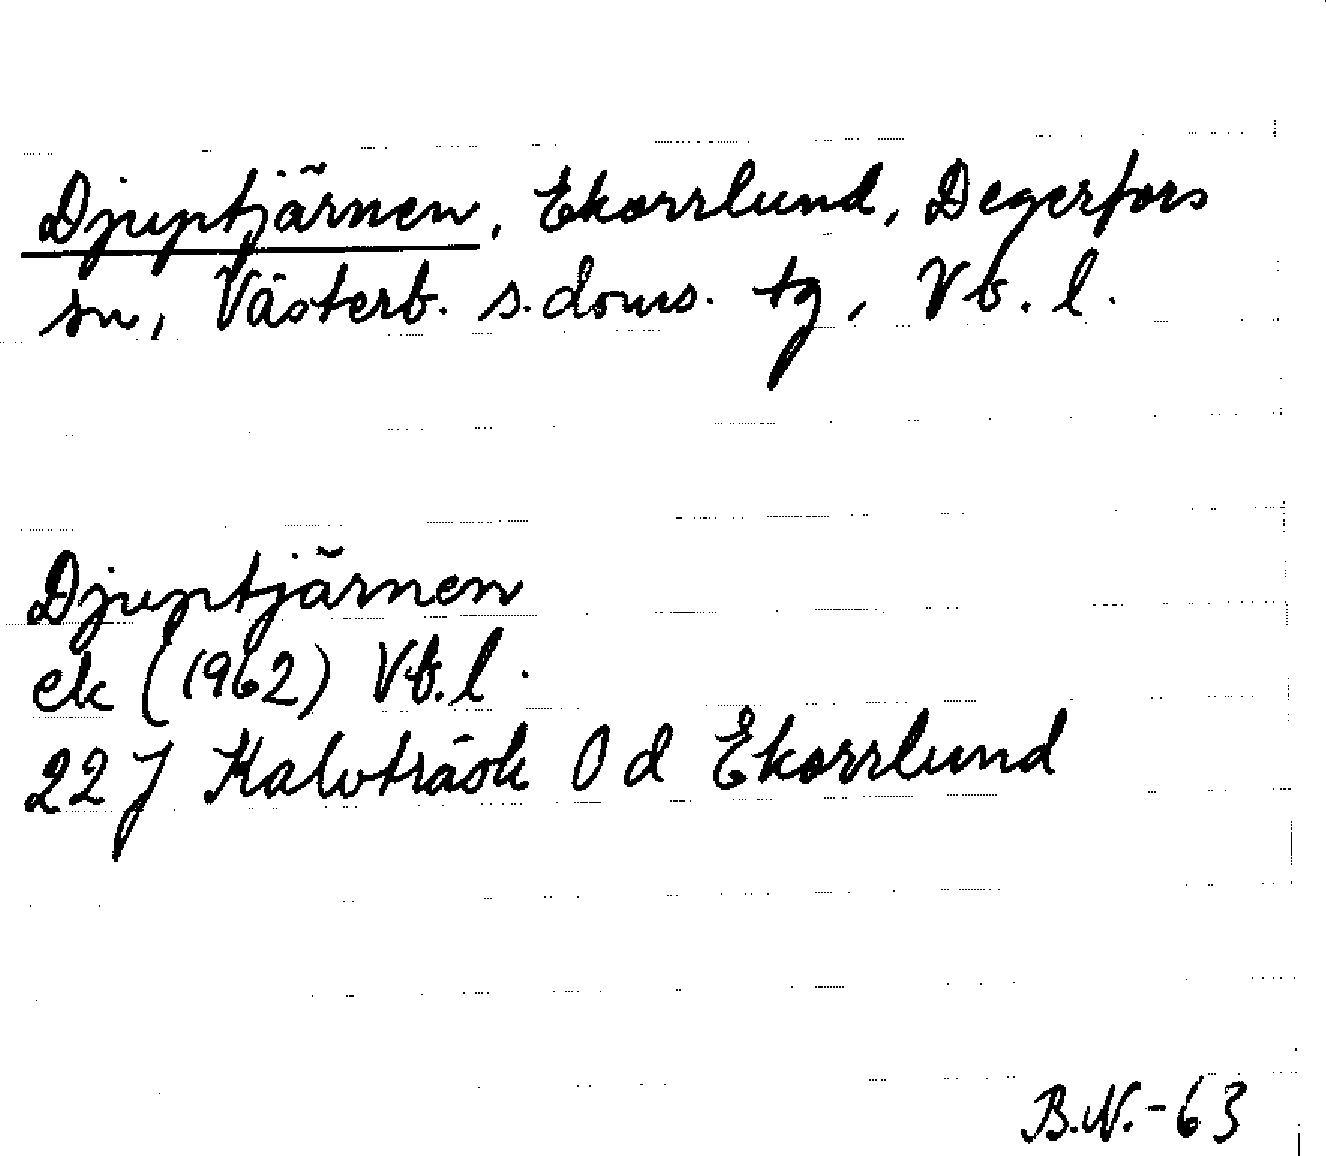 Djuptjärnen, Ekorrlund, Degerfors
sn, Västerb. s. doms. tg, Vb. l.
Djuptjärnen
ek (1962) Vb. l.
22 J Kalvträsk O d Ekorrlund
B.N.-63